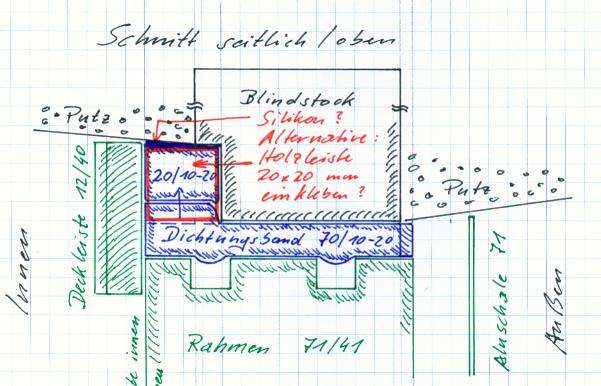 Schnitt seitlich/oben
Blindstock
Putz
Silikon?
Alternative:
Holzleiste
20x20 mm
einkleben?
20/10-20
Putz
Deckleiste 12/40
Dichtungsband 70/10-20
Innen
Außen
Aluschale 71
Rahmen 71/41
innen